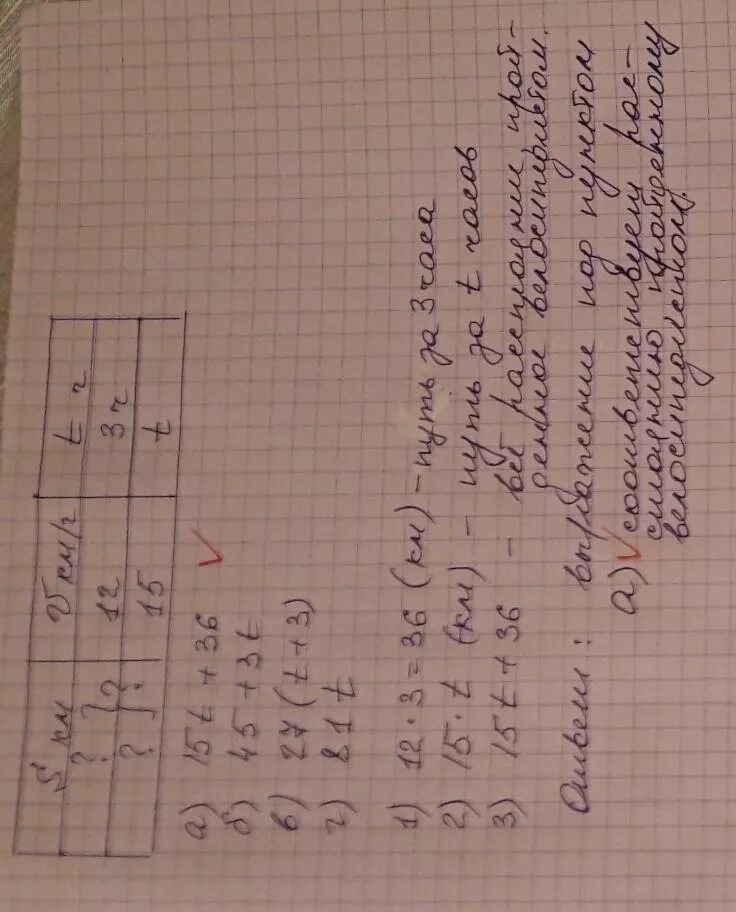 S км v км/г t г
? } ? 12 3 ч
? 15 t
а) 15t + 36 ✓
б) 45 + 3t
в) 27 (t + 3)
г) 81 t
1) 12 · 3 = 36 (км) – путь за 3 часа
2) 15 · t (км) – путь за t часов
3) 15t + 36 – всё расстояние, прой-
денное велосипедистом.
Ответ: выражение под пунктом
а) ✓ соответствует рас-
стоянию пройденному
велосипедистом.